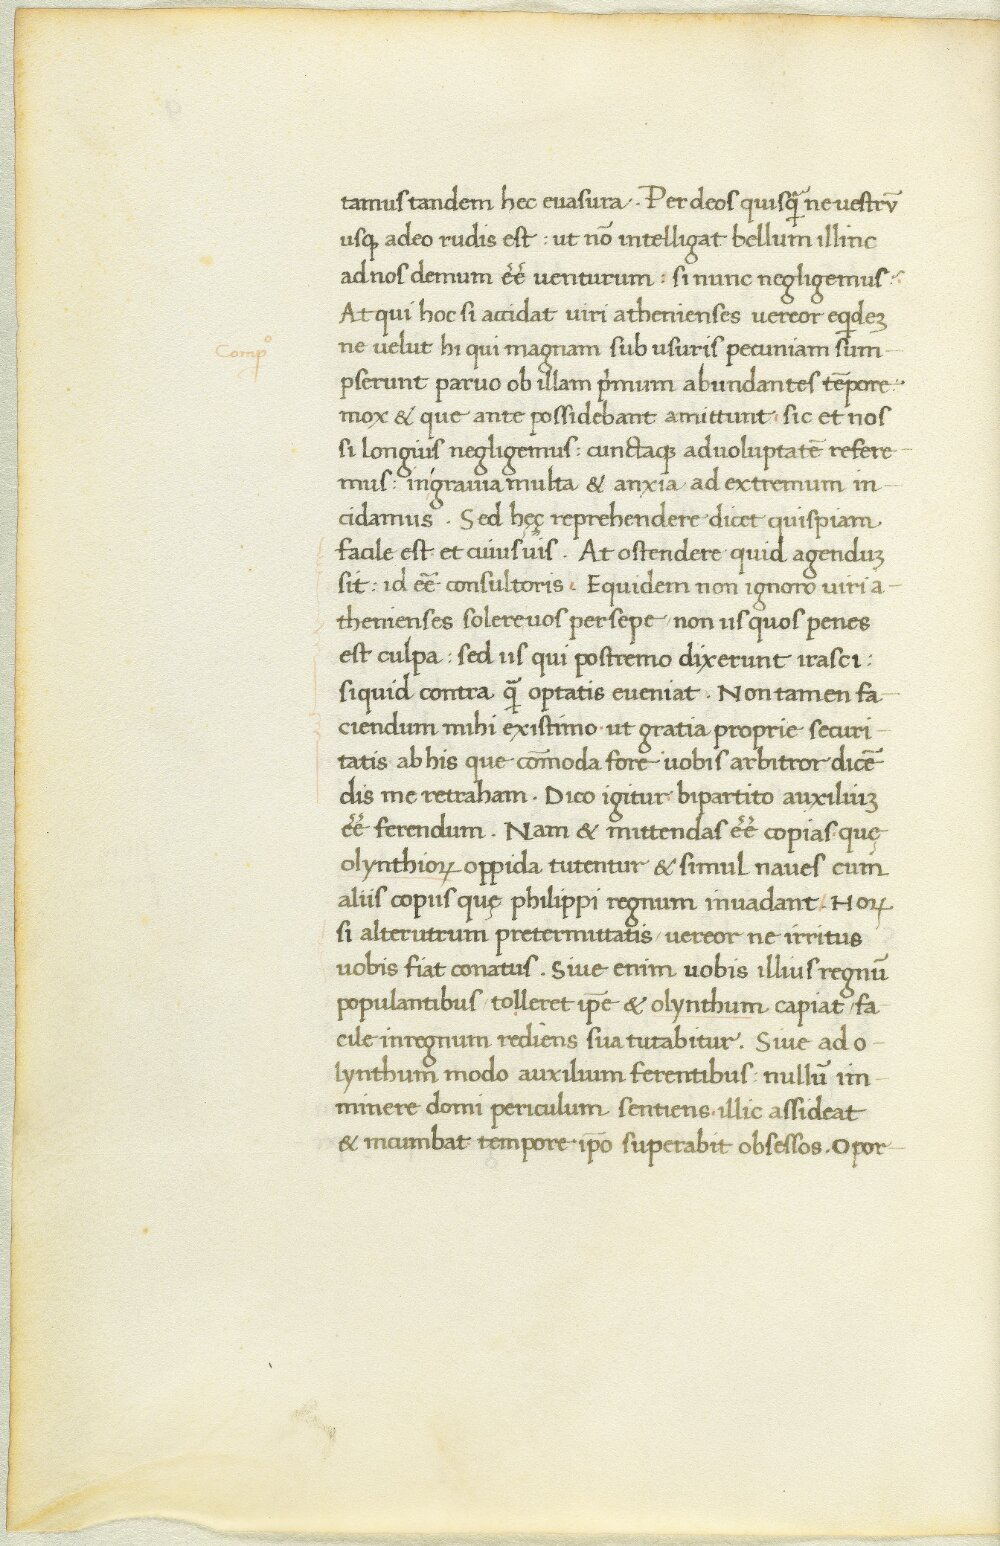 tamus tandem hec euasura. Per deos quisq̃ ne uestrũ
usq; adeo rudis est : ut nõ intelligat bellum illinc
ad nos demum eẽ uenturum : si nunc negligemus:
At qui hoc si accidat uiri athenienses uereor eqidez
Comp°
ne uelut hi qui magnam sub usuris pecuniam sum-
pserunt paruo ob illam p'mum abundantes tẽpore:
mox & que ante possidebant amittunt. sic et nos
si longius negligemus: cunctaq; ad uoluptatẽ refere-
mus: in grauia multa & anxia ad extremum in-
cidamus . Sed hęc reprehendere dicet quispiam
facile est et cuiusuis . At ostendere quid agenduz
sit : id eẽ consultoris . Equidem non ignoro uiri a-
thenienses solere uos persepe non iis quos penes
est culpa : sed iis qui postremo dixerunt irasci :
siquid contra q̃ optatis eueniat . Non tamen fa-
ciendum mihi existimo ut gratia proprie securi-
tatis ab his que cõmoda fore uobis arbitror dicẽ
dis me retraham . Dico igitur bipartito auxiliuz
eẽ ferendum . Nam & mittendas eẽ copias quę
olynthioꝝ oppida tutentur & simul naues cum
aliis copiis quę philippi regnum inuadant . Hoꝝ
si alterutrum pretermittatis uereor ne irritus
uobis fiat conatus . Siue enim uobis illius regnũ
populantibus tolleret ip̃e & olynthum capiat / fa-
cile in regnum rediens sua tutabitur . Siue ad o-
lynthum modo auxilium ferentibus : nullũ im-
minere domi periculum sentiens . illic assideat
& incumbat tempore ip̃o superabit obsessos . Opor-